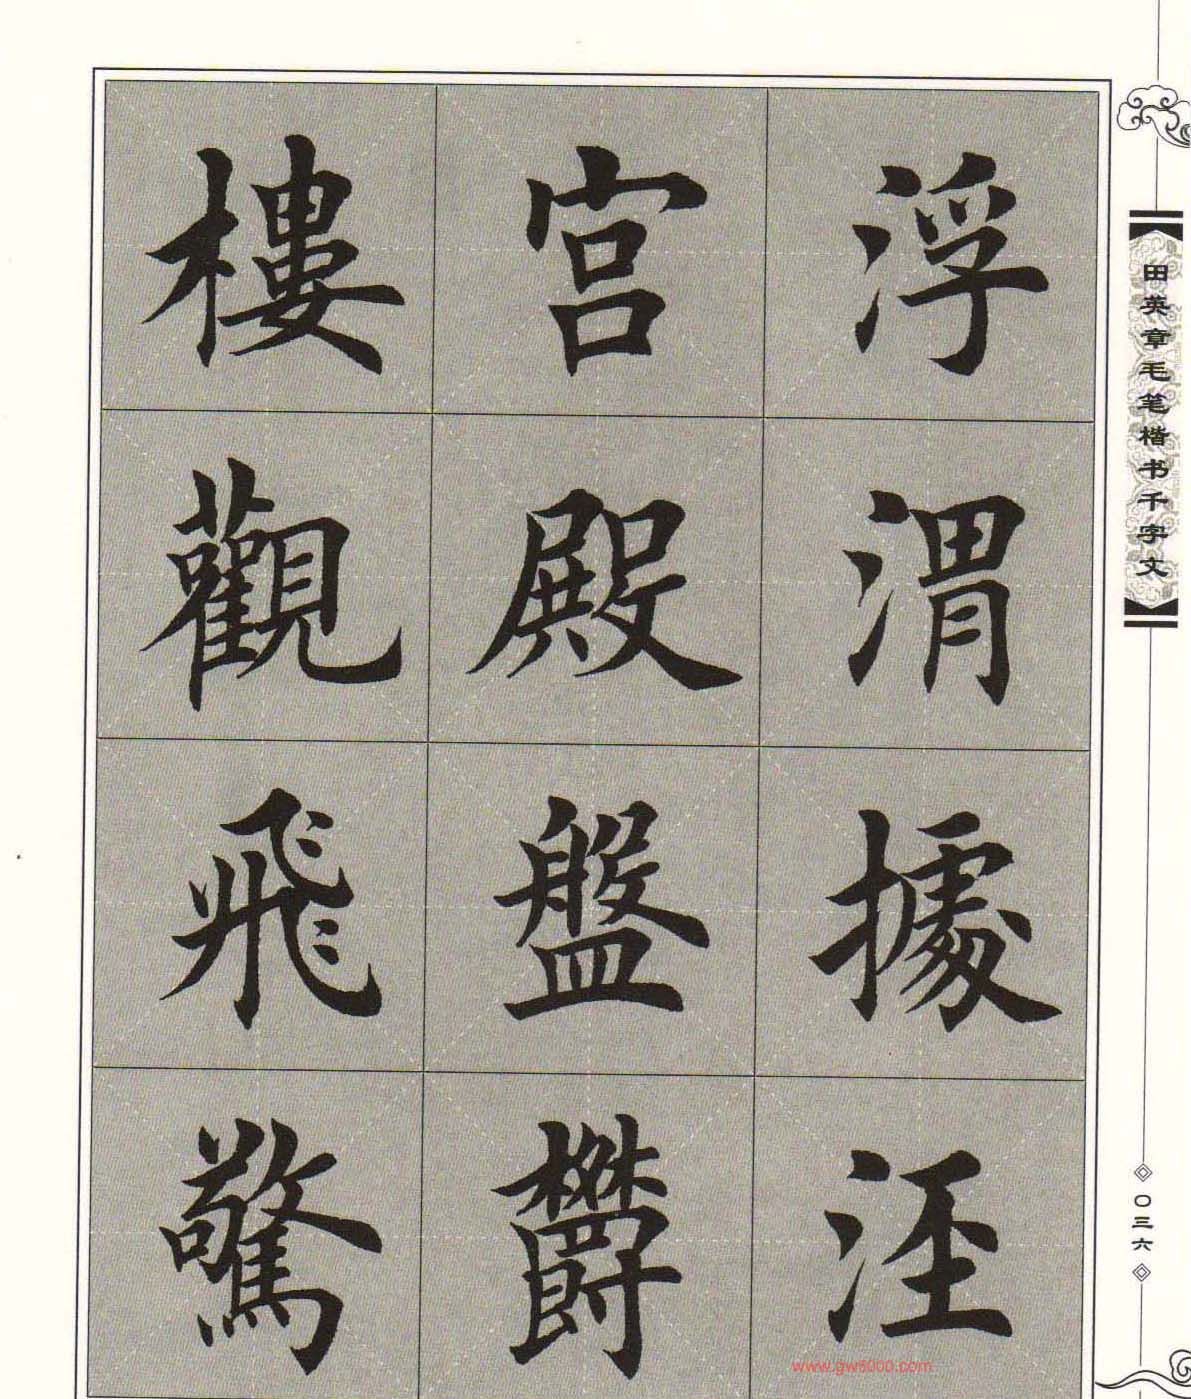 浮渭據泾
宫殿盤鬱
樓觀飛驚
田英章毛笔楷书千字文
〇三六
www.gw5000.com